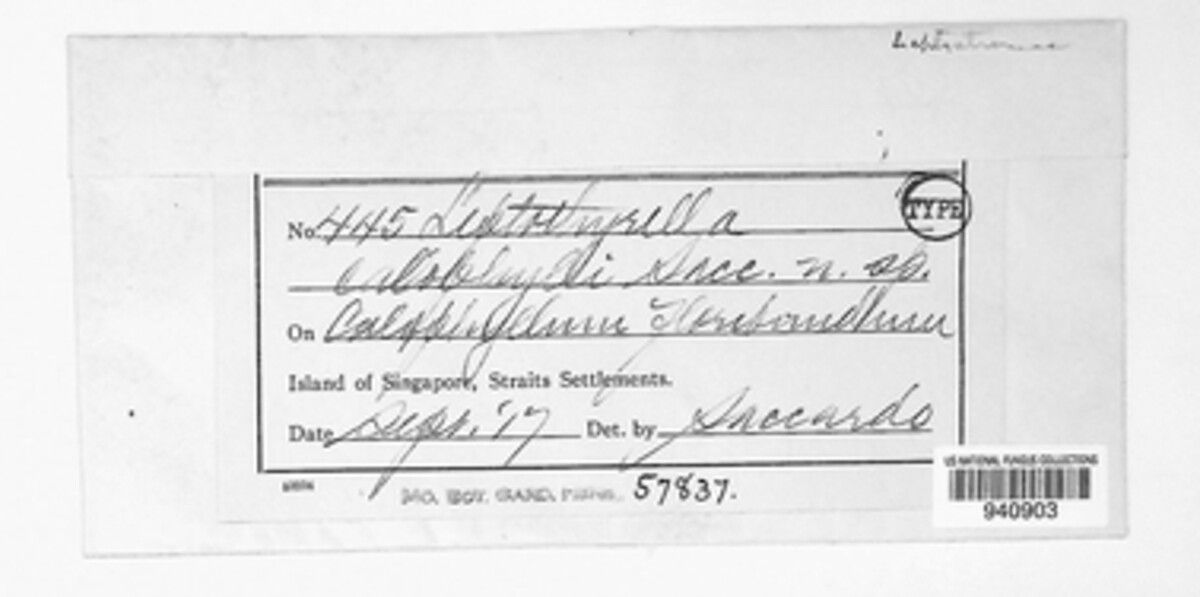 TYPE
No. 445 Leptothyrella
Calophylli Sacc. n. sp.
On Calophyllum floribundum
Island of Singapore, Straits Settlements.
Date Sept. '17 Det. by Saccardo
MO. BOT. GARD. HERB. 57837.
US NATIONAL FUNGUS COLLECTIONS
940903